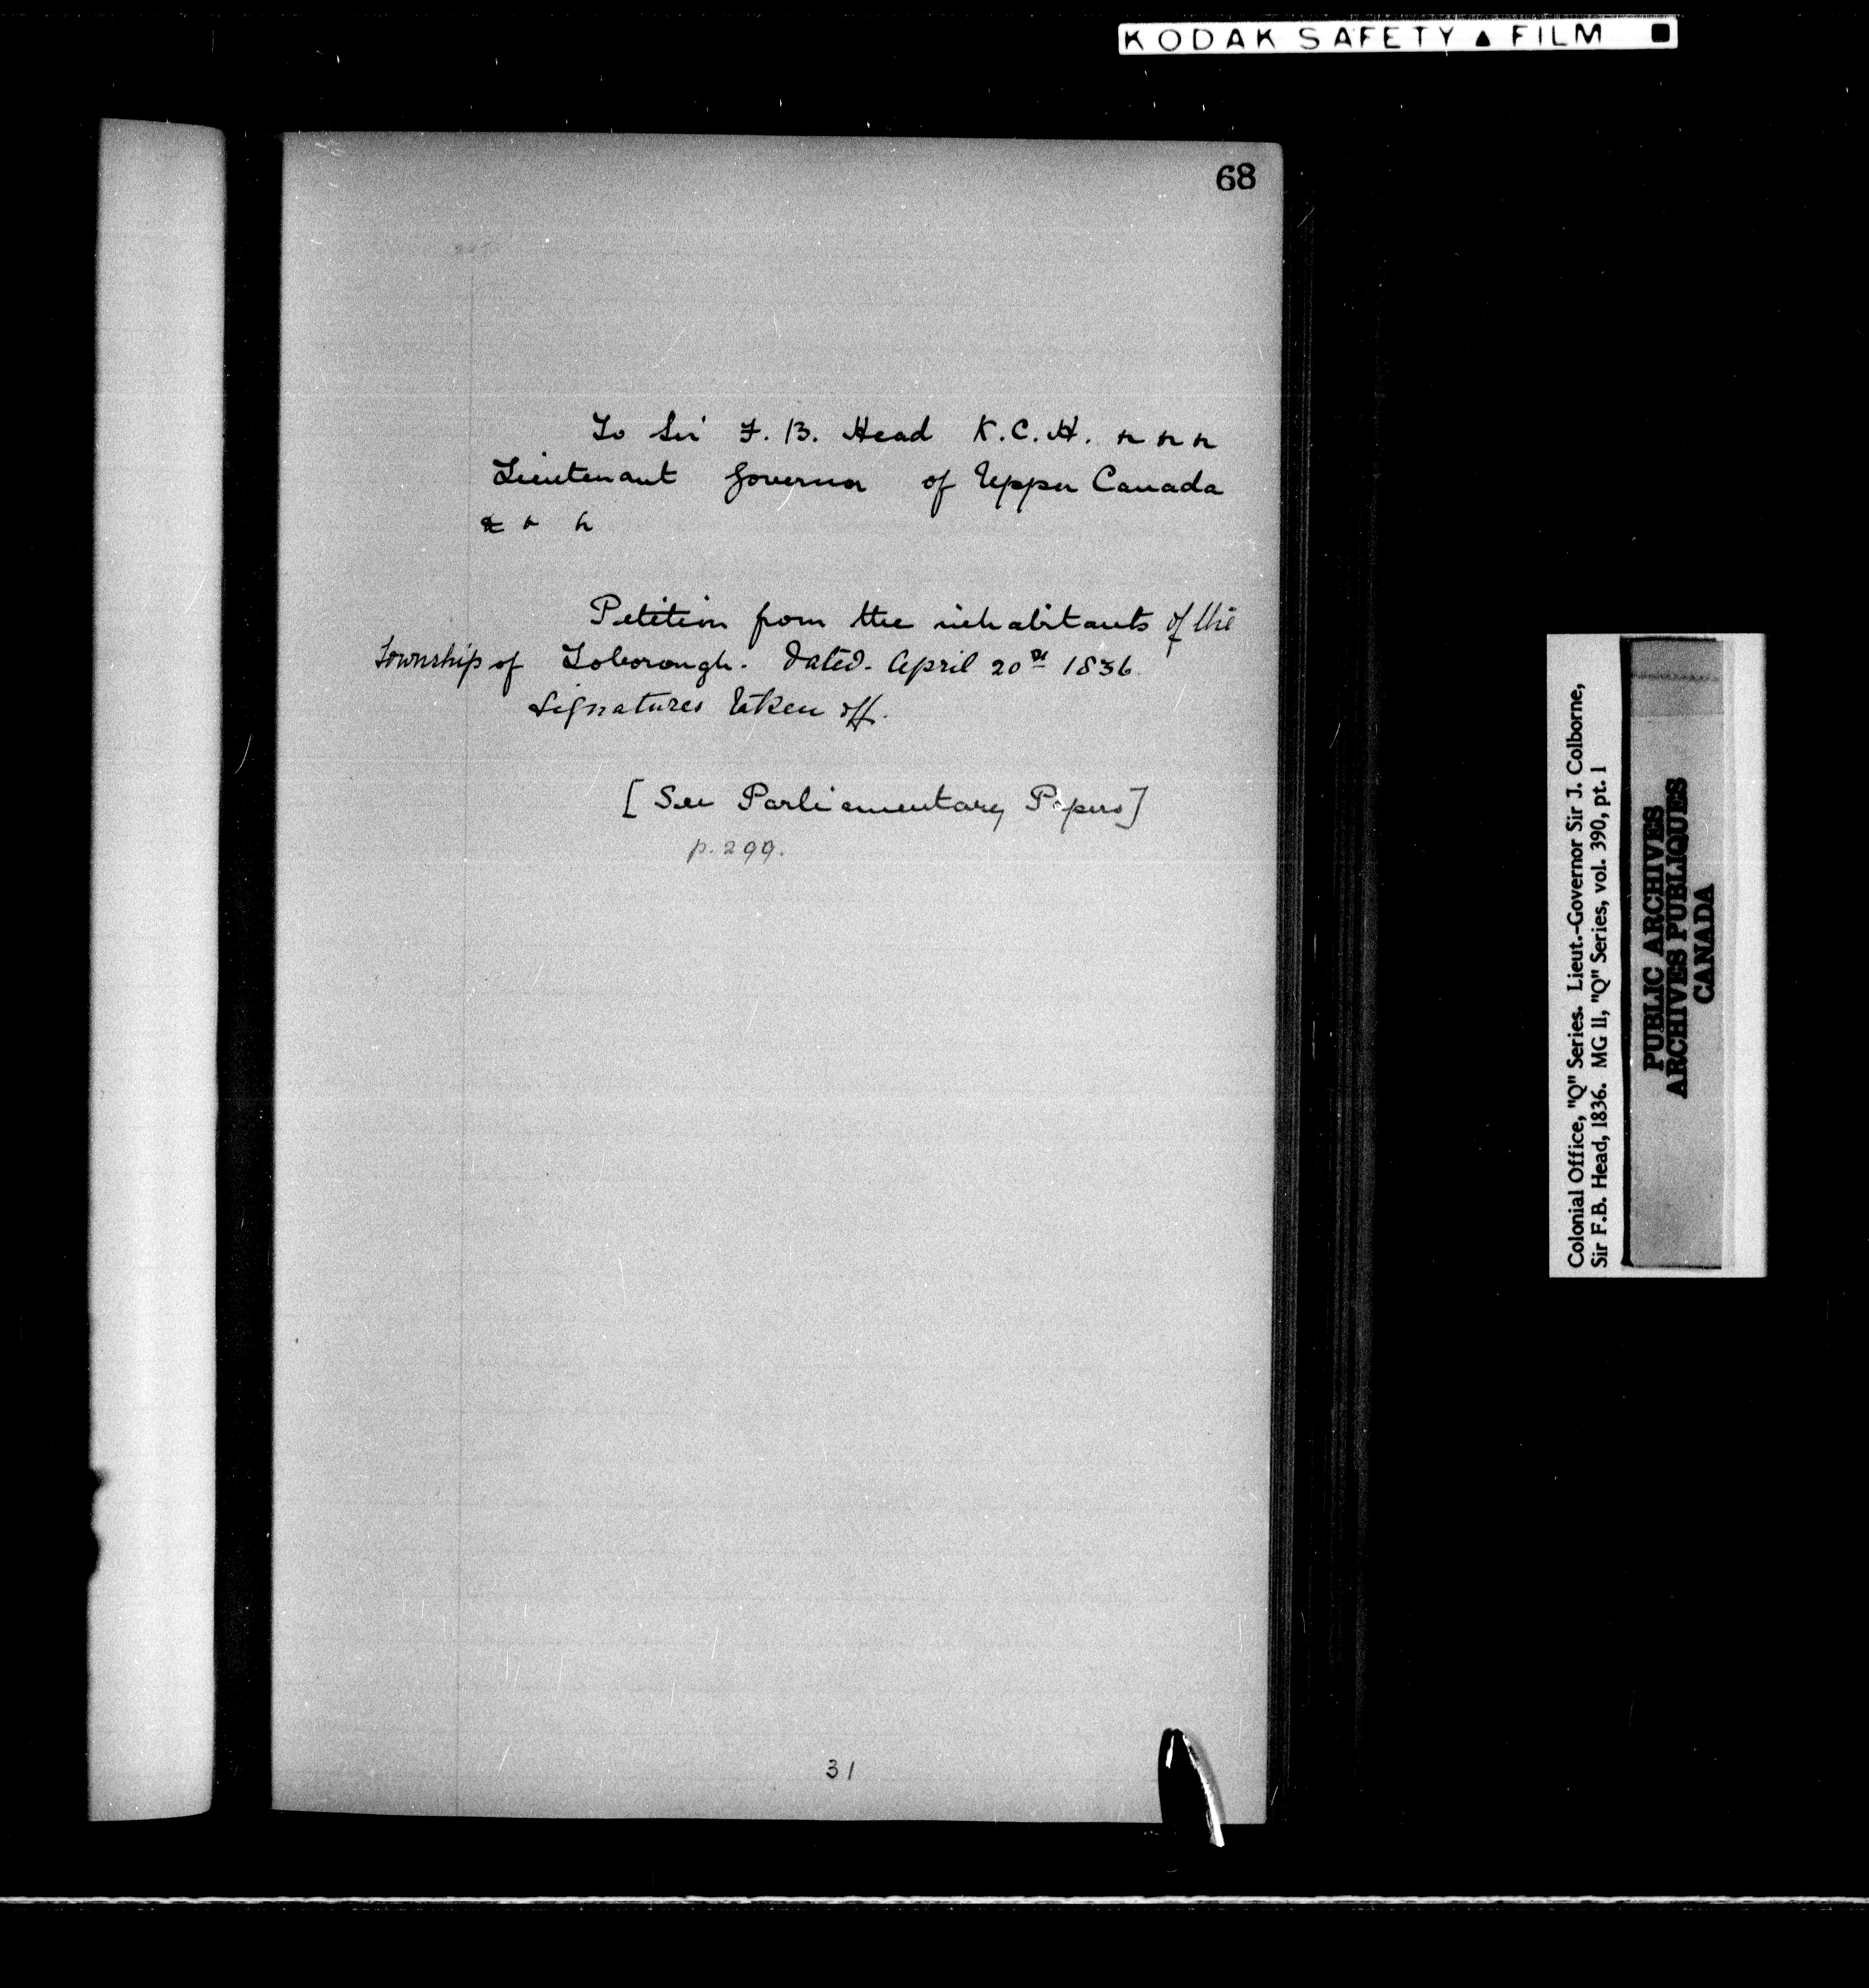 KODAK SAFETY ▲ FILM ■
68
To Sir F. B. Head K.C.H. & & &
Lieutenant Governor of Upper Canada
& & &
Petition from the inhabitants of the
Township of Loborough. Dated. April 20th 1836.
Signatures taken off.
[See Parliamentary Papers]
p. 299.
31
Colonial Office, "Q" Series. Lieut.-Governor Sir J. Colborne,
Sir F.B. Head, 1836. MG 11, "Q" Series, vol. 390, pt. 1
PUBLIC ARCHIVES
ARCHIVES PUBLIQUES
CANADA